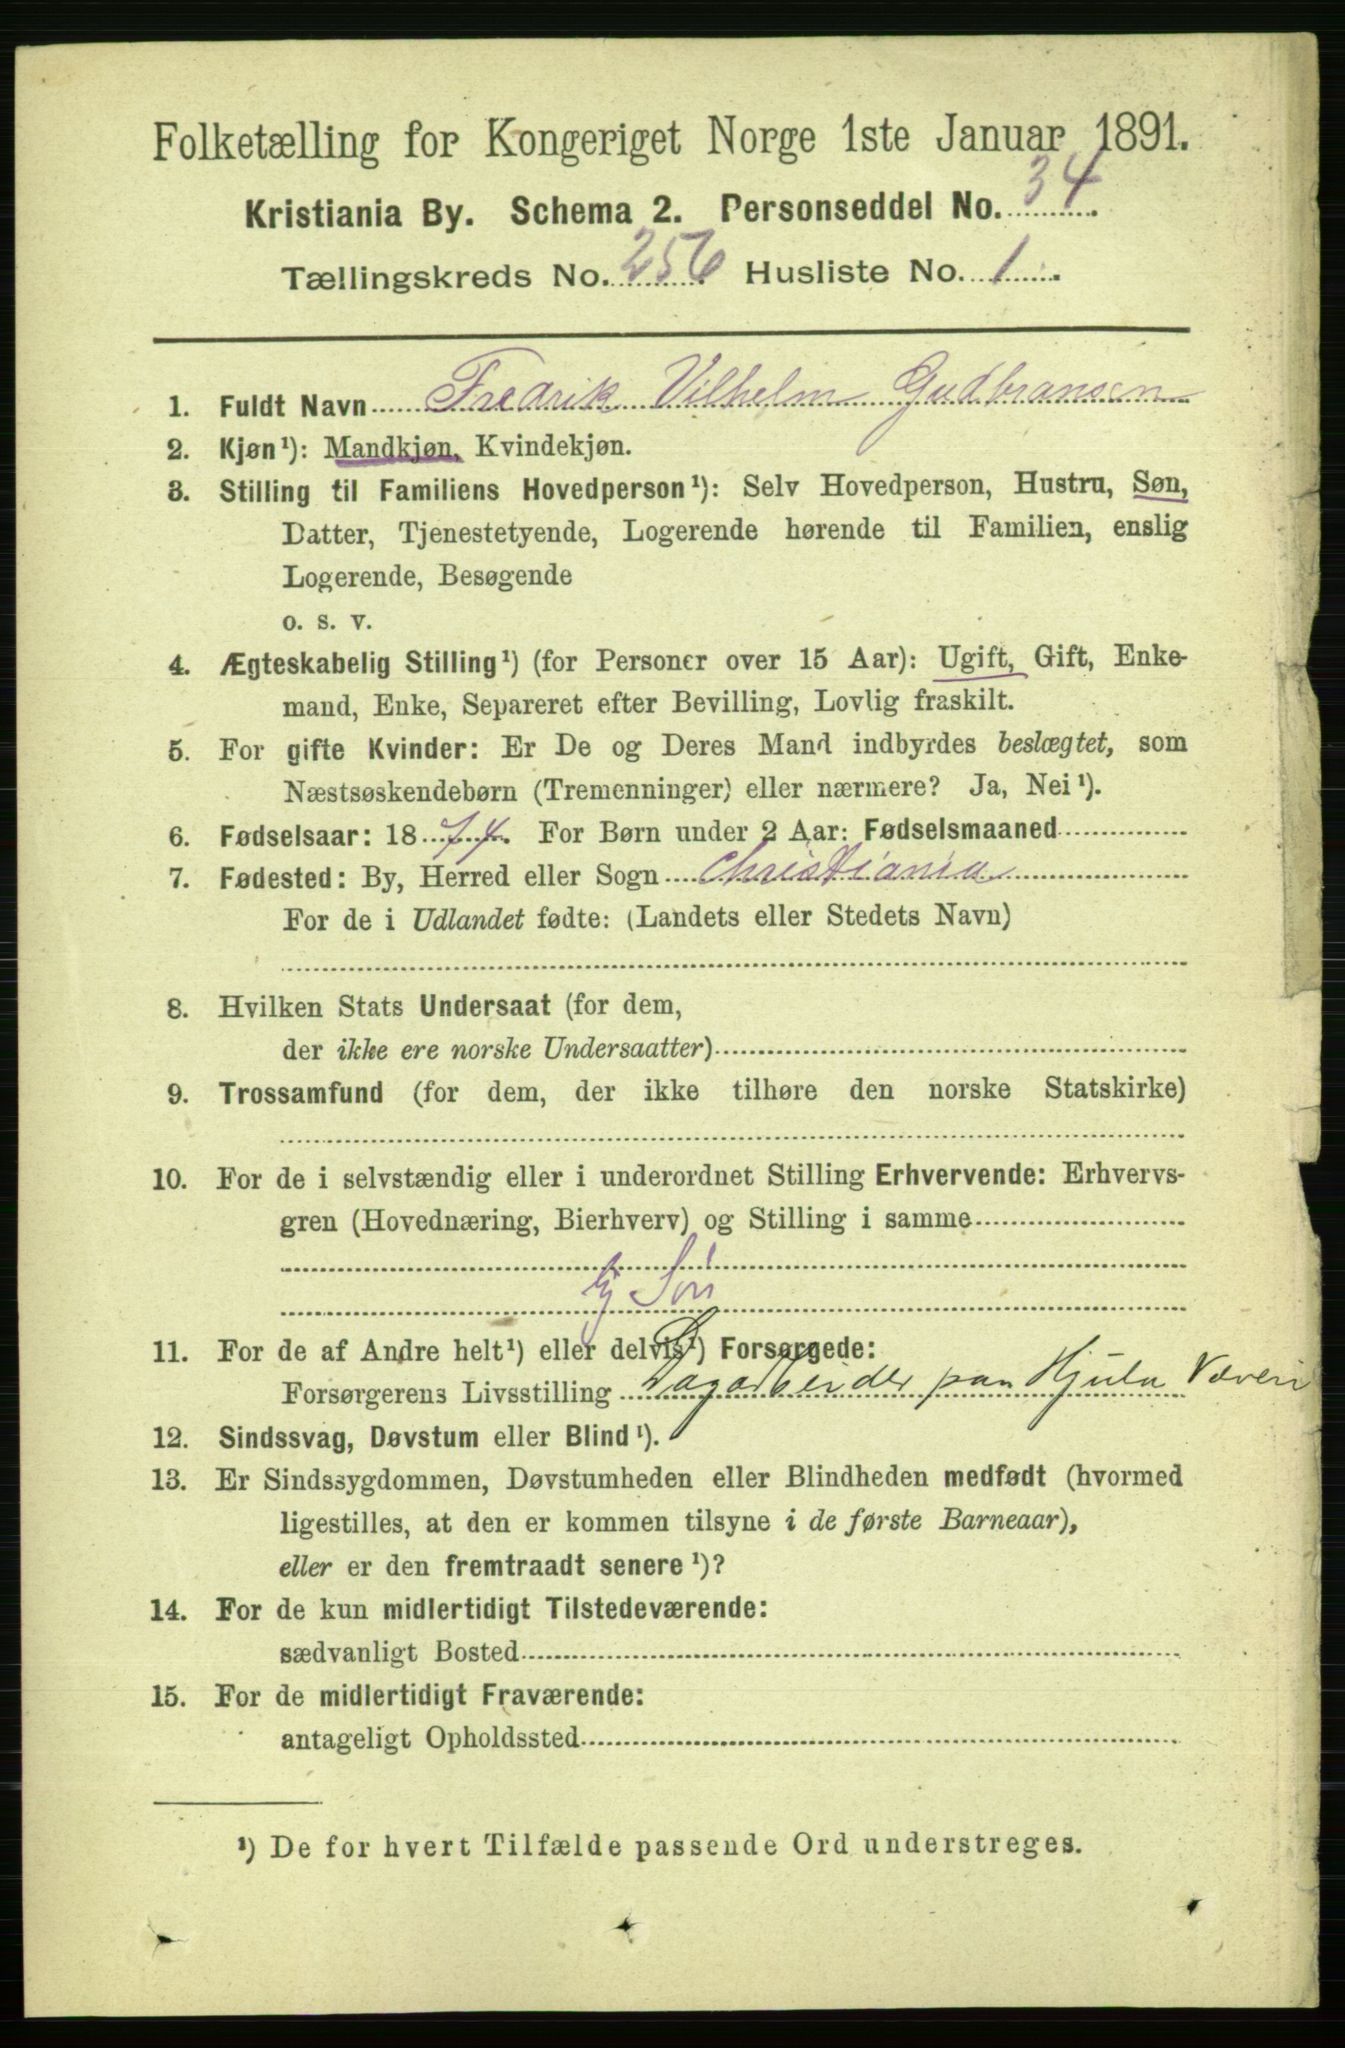 Folketælling for Kongeriget Norge 1ste Januar 1891.
Kristiania By. Schema 2. Personseddel No. 34
Tællingskreds No. 256 Husliste No. 1
1. Fuldt Navn Fredrik Vilhelm Gudbransen
2. Kjøn¹): Mandkjøn, Kvindekjøn.
3. Stilling til Familiens Hovedperson¹): Selv Hovedperson, Hustru, Søn,
Datter, Tjenestetyende, Logerende hørende til Familien, enslig
Logerende, Besøgende
o. s. v.
4. Ægteskabelig Stilling¹) (for Personer over 15 Aar): Ugift, Gift, Enke-
mand, Enke, Separeret efter Bevilling, Lovlig fraskilt.
5. For gifte Kvinder: Er De og Deres Mand indbyrdes beslægtet, som
Næstsøskendebørn (Tremenninger) eller nærmere? Ja, Nei¹).
6. Fødselsaar: 1874. For Børn under 2 Aar: Fødselsmaaned
7. Fødested: By, Herred eller Sogn Christiania
For de i Udlandet fødte: (Landets eller Stedets Navn)
8. Hvilken Stats Undersaat (for dem,
der ikke ere norske Undersaatter)
9. Trossamfund (for dem, der ikke tilhøre den norske Statskirke)
10. For de i selvstændig eller i underordnet Stilling Erhvervende: Erhvervs-
gren (Hovednæring, Bierhverv) og Stilling i samme
Søn
11. For de af Andre helt¹) eller delvis¹) Forsørgede:
Forsørgerens Livsstilling Dagarbeider paa Hjula Væveri
12. Sindssvag, Døvstum eller Blind¹).
13. Er Sindssygdommen, Døvstumheden eller Blindheden medfødt (hvormed
ligestilles, at den er kommen tilsyne i de første Barneaar),
eller er den fremtraadt senere¹)?
14. For de kun midlertidigt Tilstedeværende:
sædvanligt Bosted
15. For de midlertidigt Fraværende:
antageligt Opholdssted
¹) De for hvert Tilfælde passende Ord understreges.